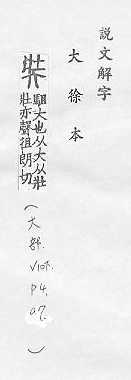 説文解字
大徐本
奘
駔大也从大从壯
壯亦聲徂朗切
(大部.
V10下.
P4.
a7.
)